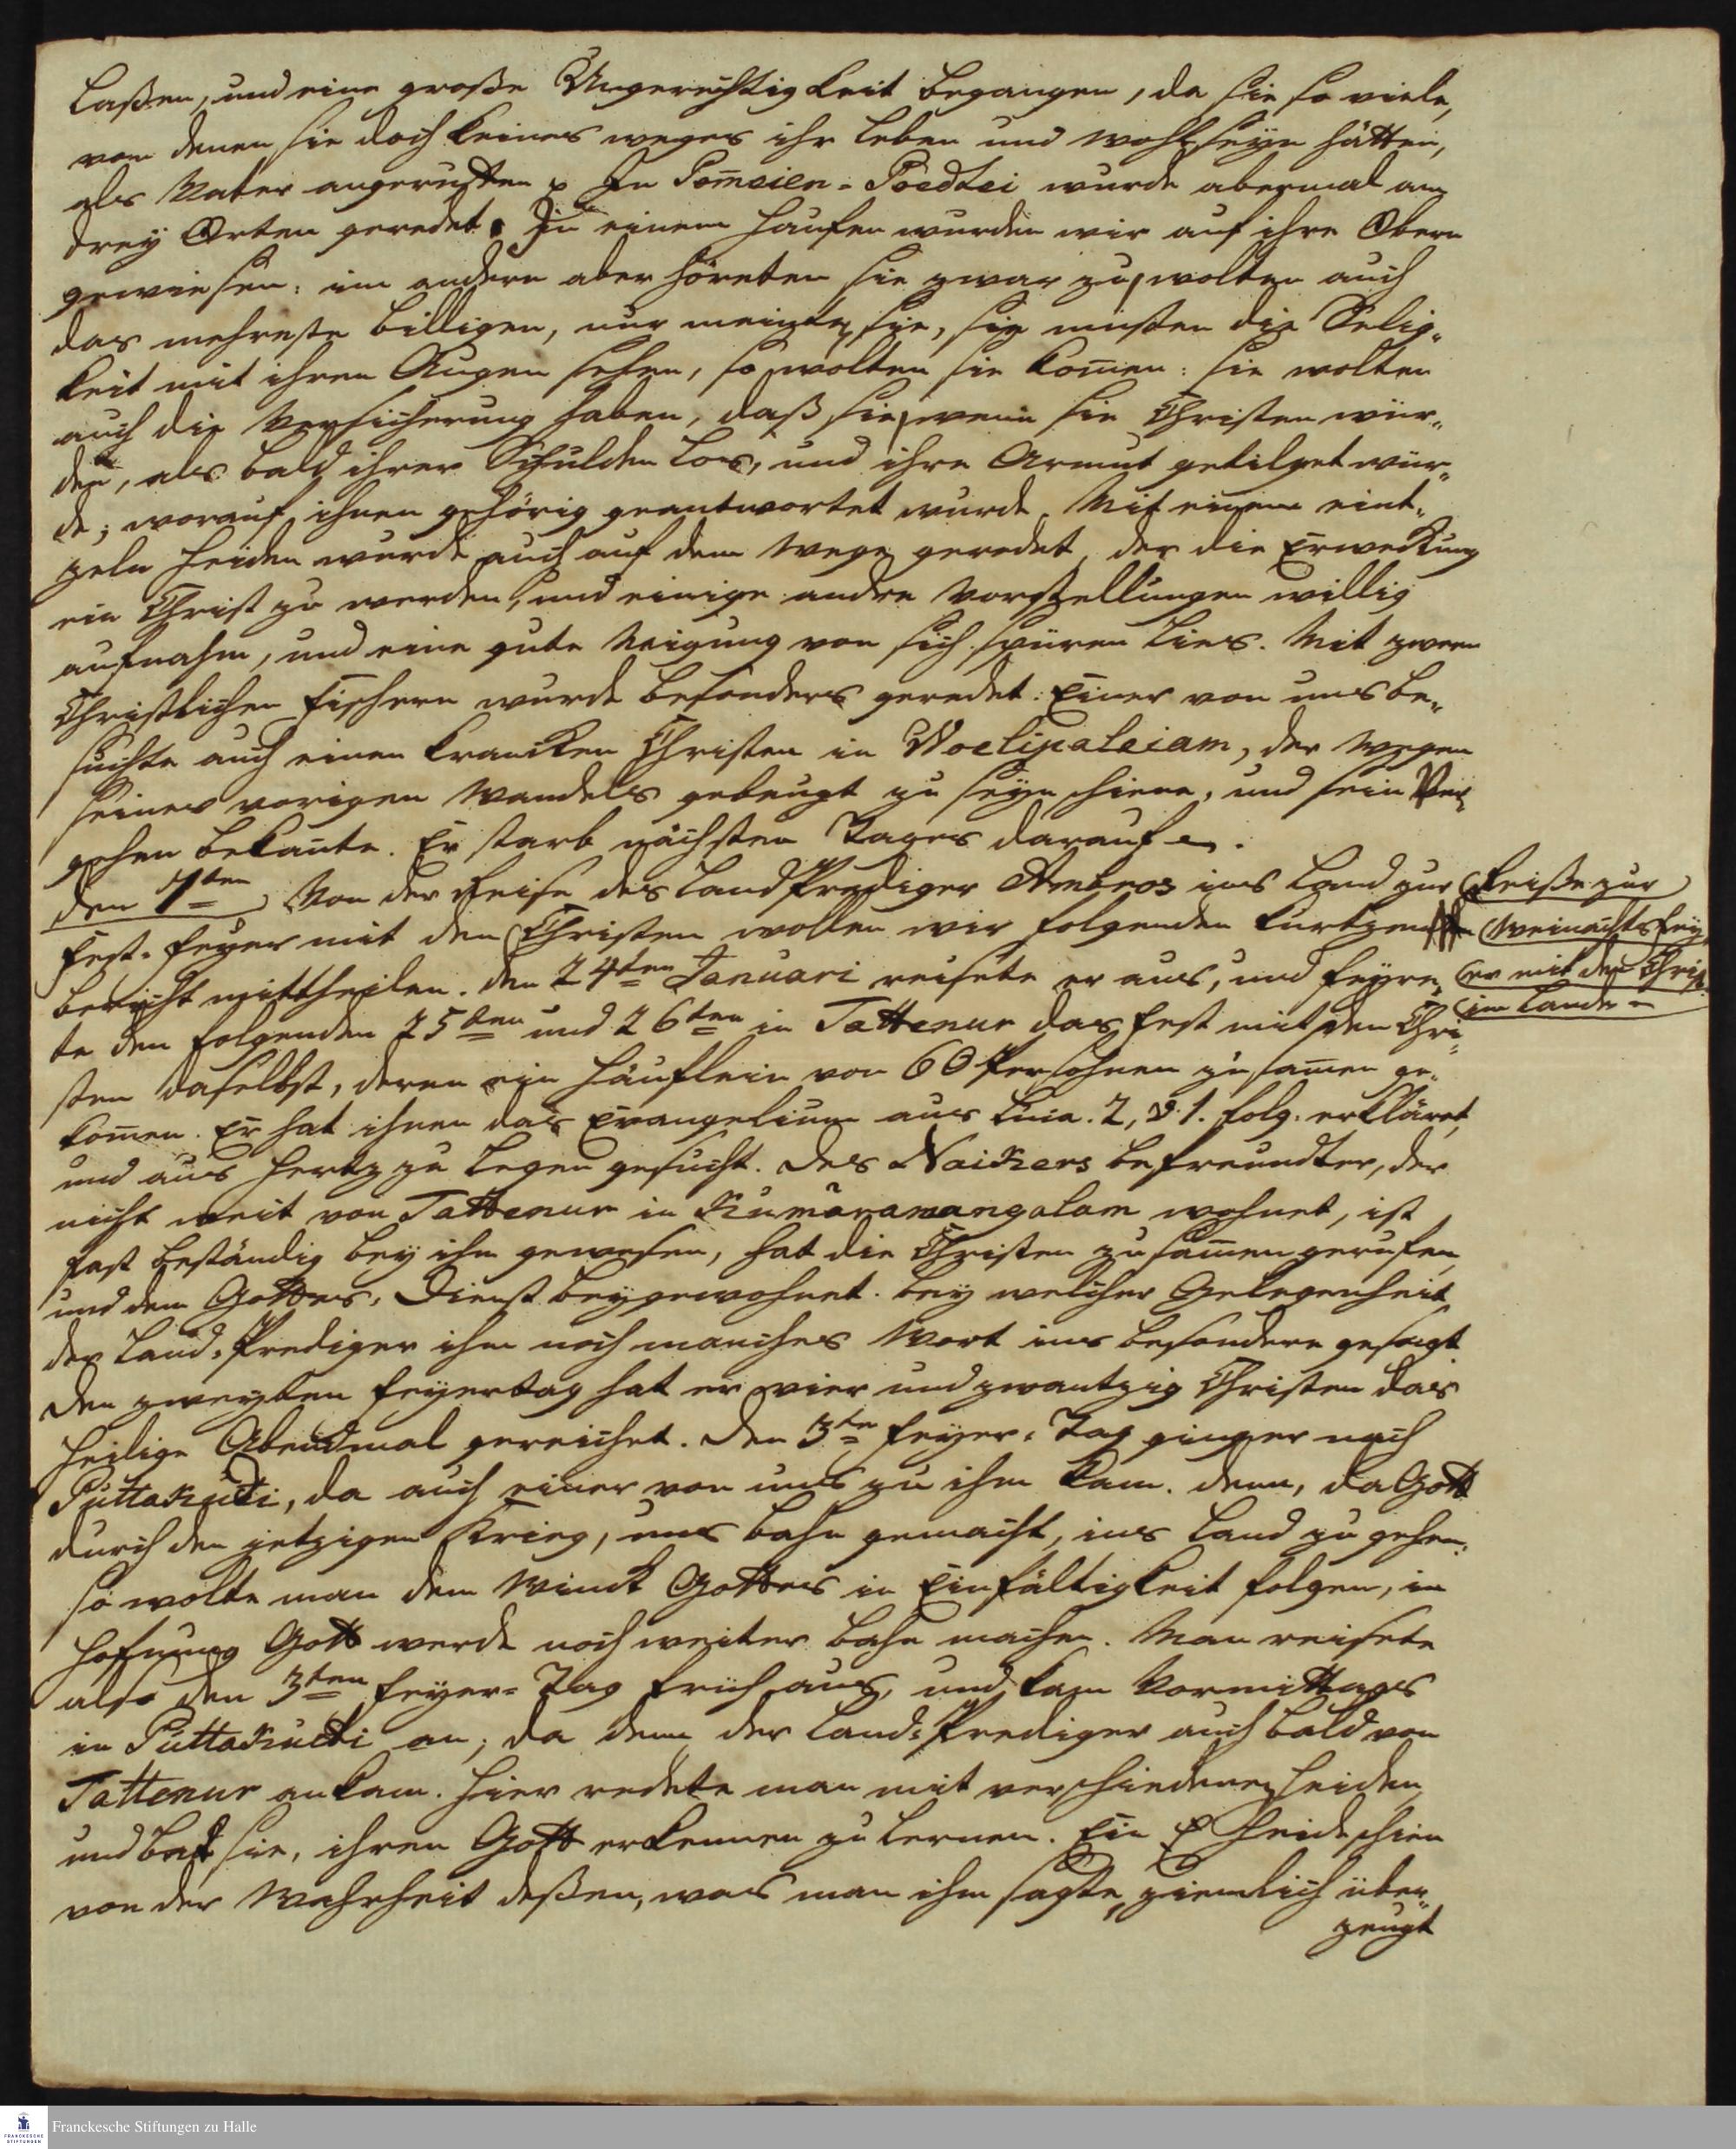 laßen, und eine große Ungerechtigkeit begangen, da sie so viele,
von denen sie doch keines weges ihr Leben und Wohlseyn hätten,
als Vater angeruffen. In Pom̄eien-Poedtei wurde abermal an
drey Orten geredet. In einem Haufen wurden wir auf ihre Obern
gewiesen: im andern aber höreten sie zwar zu, wolten auch
das mehreste billigen, nur meinten sie, sie müsten die Selig-
keit mit ihren Augen sehen, so wolten sie kom̄en: sie wolten
auch die Versicherung haben, daß sie, wenn sie Christen wür-
den, als bald ihrer Schulden los, und ihre Armut getilget wür-
de; worauf ihnen gehörig geantwortet wurde. Mit einem eint-
zeln Heiden wurde auch auf dem Wege geredet, der die Erweckung
ein Christ zu werden, und einige andre Vorstellungen willig
aufnahm, und eine gute Neigung von sich spüren lies. Mit zween
Christlichen Fischern wurde besonders geredet: Einer von uns be-
suchte auch einen krancken Christen in Woelipaleiam, der wegen
seines vorigen Wandels gebeugt zu seyn schiene, und sein Ver-
gehen bekan̄te. Er starb nächsten Tages darauf.
den 7ten Von der Reise des Land Prediger Ambros ins Land zur
Fest-Feyer mit den Christen wollen wir folgenden kurtzen
Bericht mittheilen. Den 24ten Januari reisete er aus, und feyre-
te den folgenden 25ten und 26ten in Tattenur das Fest mit den Chri-
sten daselbst, deren ein Häuflein von 60 Persohnen zusam̄en ge-
kom̄en. Er hat ihnen das Evangelium aus Luca. 2, v. 1. folg. erkläret,
und ans Hertz zu legen gesucht. Des Naikers befreundter, der
nicht weit von Tattenur in Kumaramangalam wohnet, ist
fast beständig bey ihm gewesen, hat die Christen zusam̄en gerufen,
und dem Gottes-Dienst beygewohnet. bey welicher Gelegenheit
der Land-Prediger ihm noch manches Wort ins besondere gesagt.
Den zweyten Feyertag hat er vier und zwantzig Christen das
heilige Abendmal gereichet. Den 3ten Feyer-Tag ging er nach
Puttakudi, da auch einer von uns zu ihm kam. denn, da Gott
durch den jetzigen Krieg, uns bahn gemacht, ins Land zu gehen:
so wolte man dem Winck Gottes in Einfältigkeit folgen, in
Hofnung Gott werde noch weiter bahn machen. Man reisete
also den 3ten Feyer-Tag früh aus, und kam Vormittags
in Puttakudi an; da denn der Land-Prediger auch bald von
Tattenur ankam. Hier redete man mit verschiedenen Heiden,
und bat sie, ihren Gott erkennen zu lernen. Ein Heide schien
von der Wahrheit deßen, was man ihm sagte, ziemlich über-
zeugt
Reise zur
Weinachts Fey-
er mit den Christ.
im Lande
Franckesche Stiftungen zu Halle
FRANCKESCHE
STIFTUNGEN